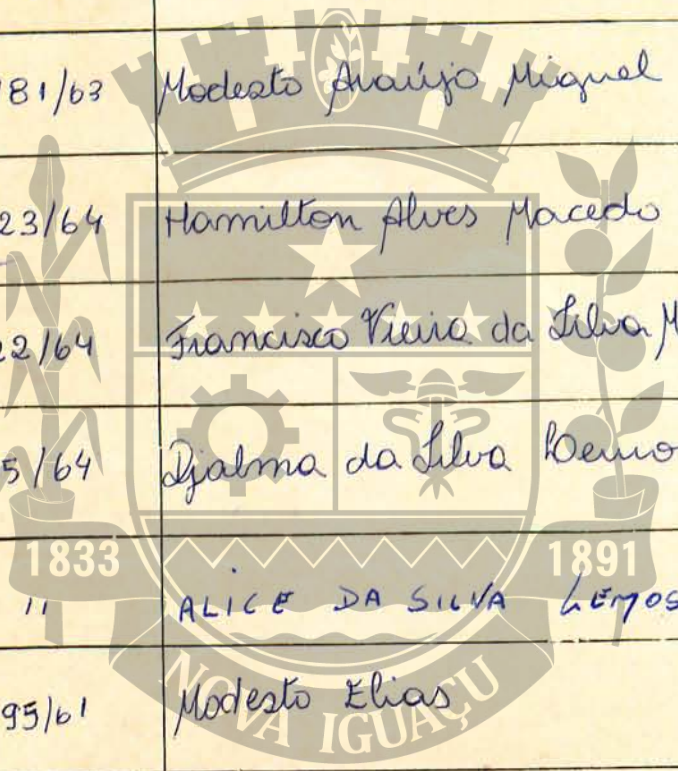 81/63 Modesto Araújo Miguel
23/64 Hamilton Alves Macedo
22/64 Francisco Vieira da Silva M
5/64 Djalma da Silva
1833 1891
11 ALICE DA SILVA LEMOS
95/61 Modesto Elias
NOVA IGUAÇU